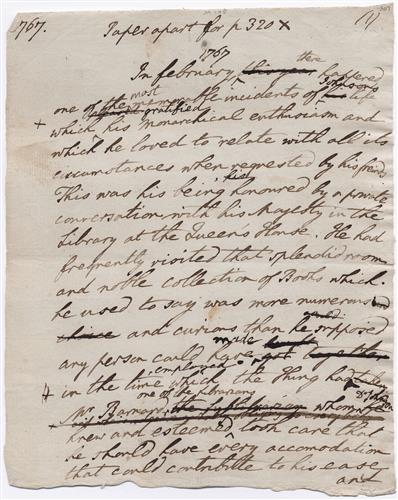 1767.
Paper apart for p 320 x
(1)
1767 there
In february, this year happened
most Johnson's
one of the remarkable incidents of his life
gratified
+ which his monarchical enthusiasm and
which he loved to relate with all its
circumstances when requested by his friends
This was his being honoured by a private
his
conversation with his Majesty in the
Library at the Queen's House. He had
frequently visited that splendid room
and noble collection of Books which
he used to say was more numerous and
choice and curious than he supposed
made
any person could have got together
employed
in the time which the thing had taken
one of the librarians
+ Mr. Barnard, the librarian whom
Dr. Johnson
knew and esteemed took care that
he should have every accomodation
that could contribute to his ease
and